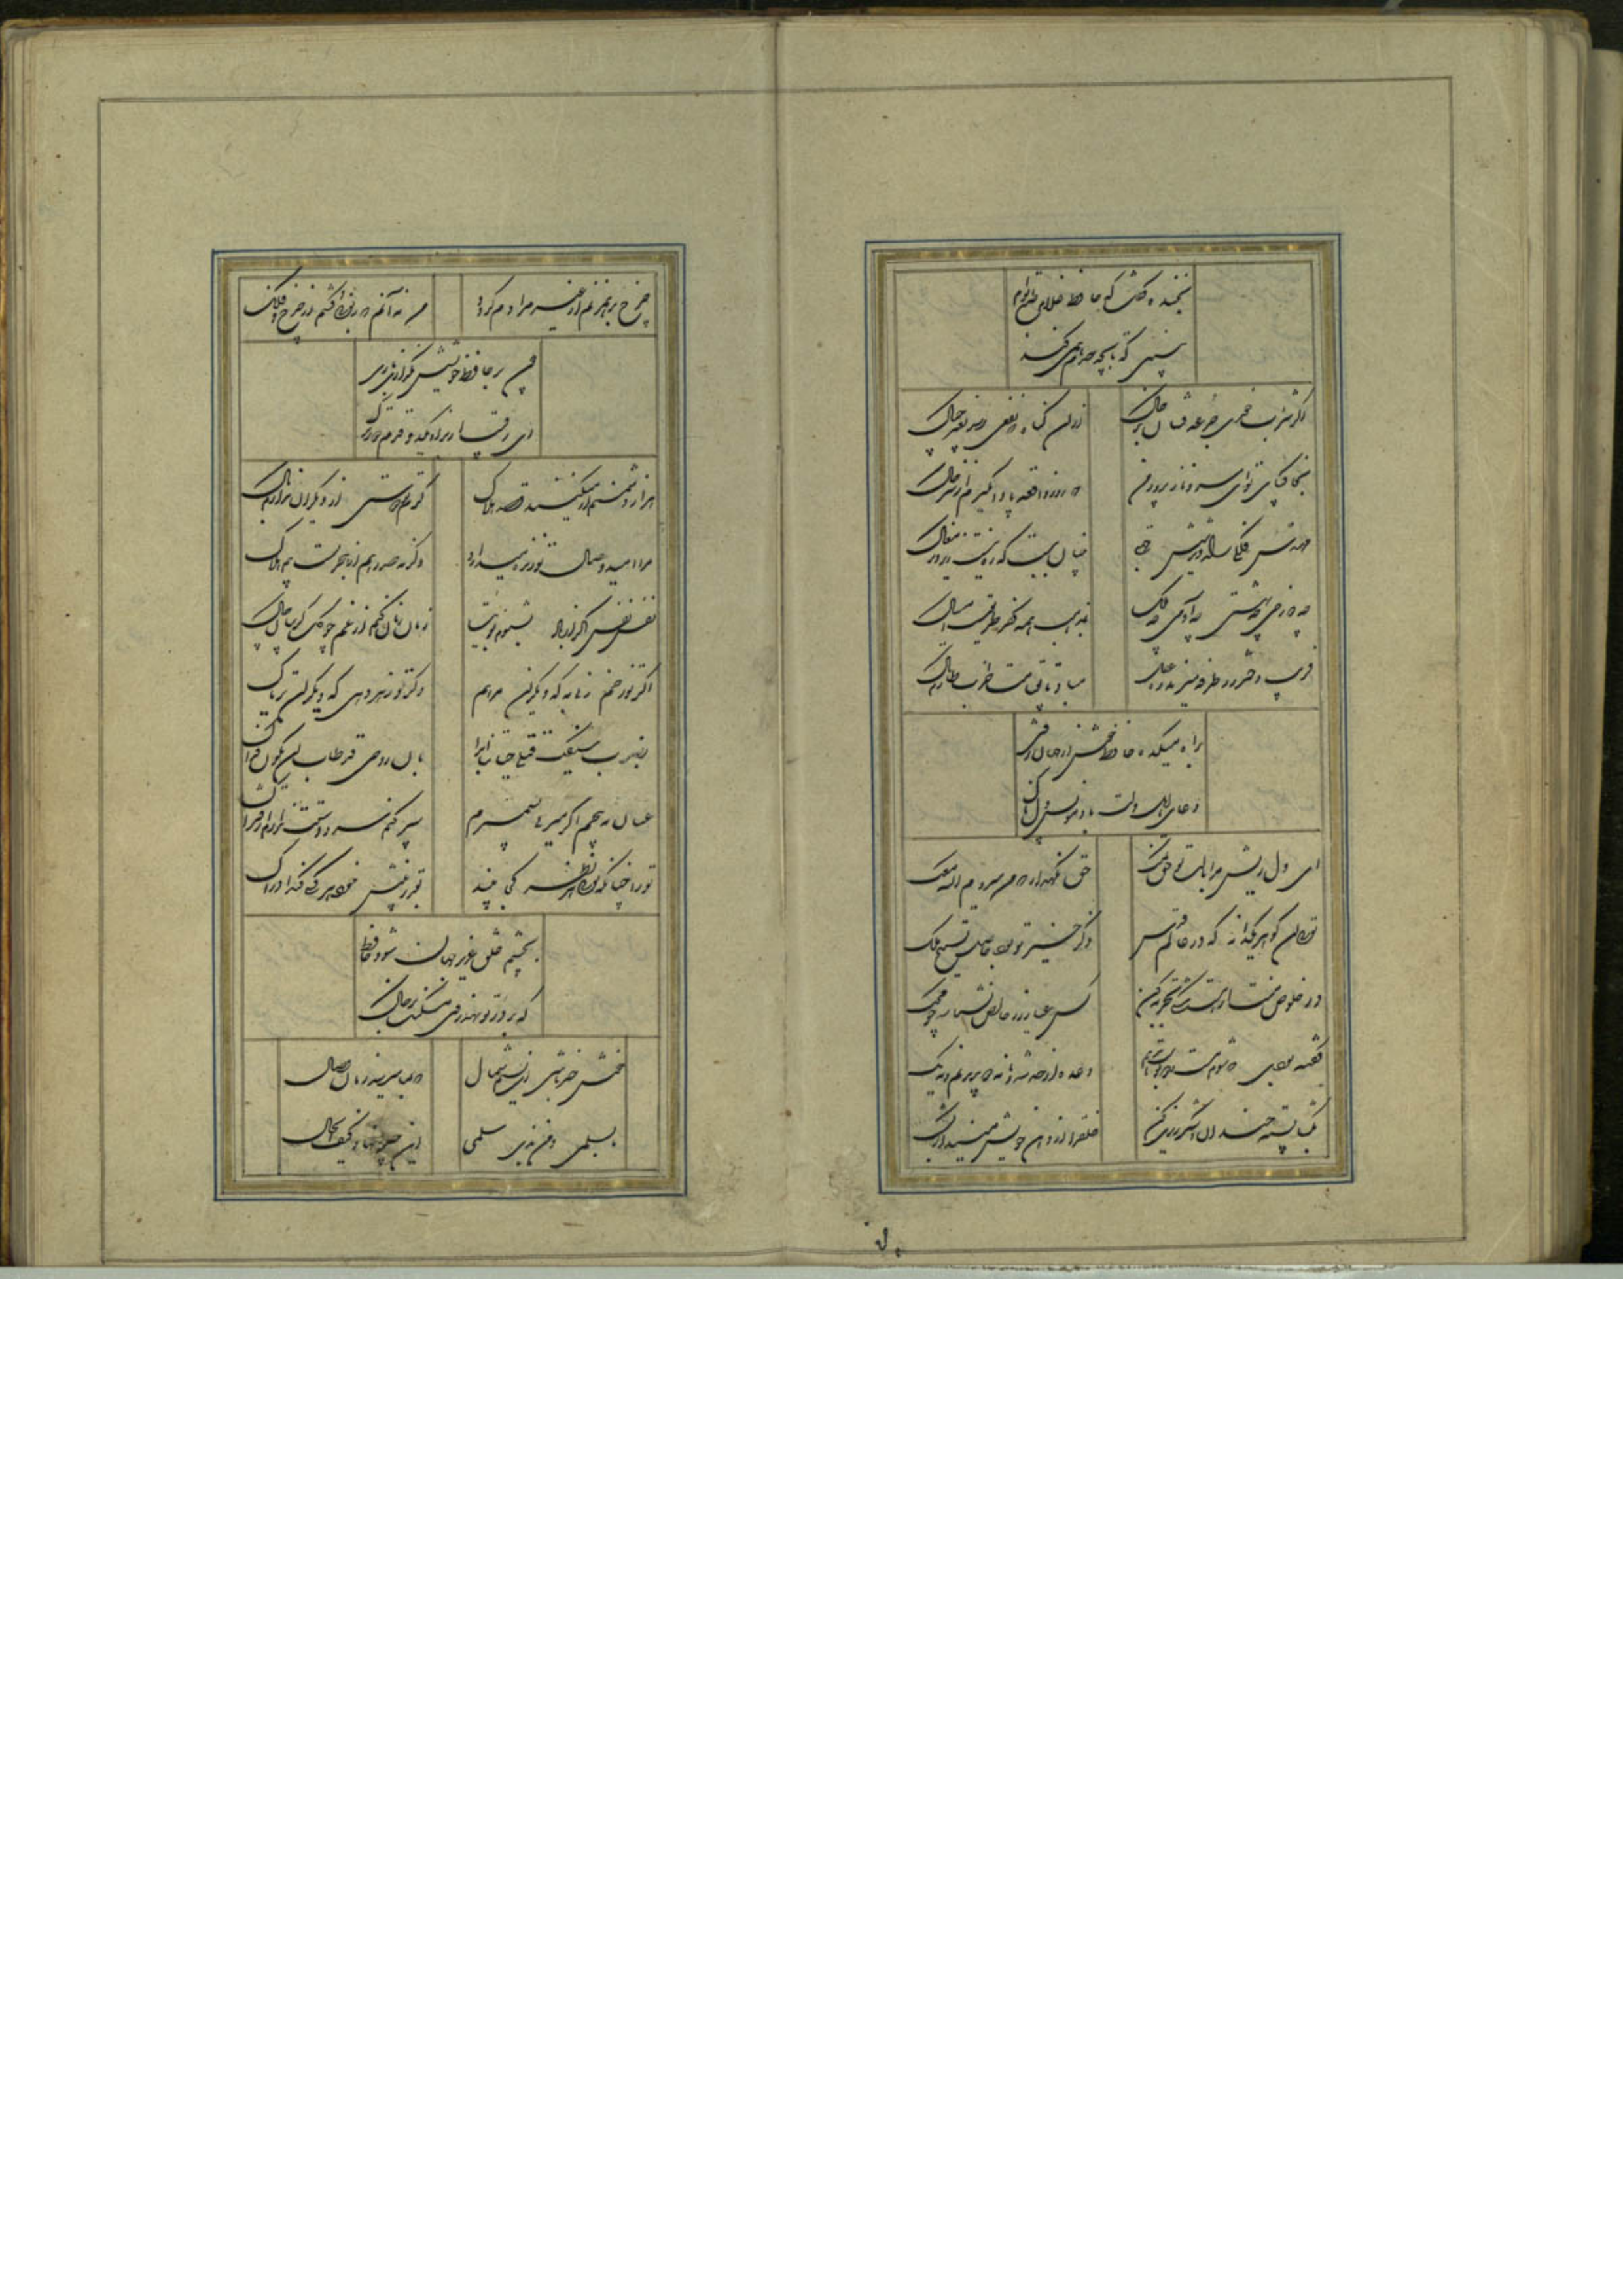 بخنده گفت که حافظ غلام طبع توام
ببین که تا بچه حدم همی کند
اگر شراب خوری جرعه فشان بر خاک
از آن گناه که نفعی رسد بغیر چه باک
بخاک پای تو ای سرو ناز پرور من
که روز واقعه پا وا مگیرم از سر خاک
مهندس فلکی راه دیر شش جهتی
چنان ببست که ره نیست زیر دیر مغاک
چه دوزخی چه بهشتی چه آدمی چه ملک
بمذهب همه کفر طریقت است امساک
فریب دختر رز طرفه میزند ره عقل
مباد تا بقیامت خراب طارم تاک
براه میکده حافظ خوش از جهان رفتی
دعای اهل دلت باد مونس دل پاک
ای دل ریش مرا با لب تو حق نمک
حق نگهدار که من میروم الله معک
توئی آن گوهر یکدانه که در عالم قدس
ذکر خیر تو بود حاصل تسبیح ملک
در خلوص منت ار هست شکی تجربه کن
کس عیار زر خالص نشناسد چو محک
گفته بودی که شوم مست و دو بوست بدهم
وعده از حد بشد و ما نه دو دیدیم و نه یک
بگشا پسته خندان و شکر ریزی کن
خلق را از دهن خویش مینداز بشک
چرخ بر هم زنم ار غیر مرادم گردد
من نه آنم که زبونی کشم از چرخ فلک
چون بر حافظ خویشش نگذاری باری
ای رقیب از بر او یکدو قدم دورترک
هزار دشمنم ار میکنند قصد هلاک
گرم تو دوستی از دیگران ندارم باک
مرا امید وصال تو زنده میدارد
وگرنه صد رهم از هجر تست بیم هلاک
نفس نفس اگر از باد نشنوم بویت
زمان زمان کنم از غم چو گل گریبان چاک
اگر تو زخم زنی به که دیگران مرهم
وگر تو زهر دهی به که دیگران تریاک
بضرب سیفک قتلی حیاتنا ابدا
بان روحی قد طاب ان یکون فداک
عنان مپیچم اگر میزنی بشمشیرم
سپر کنم سر و دستت ندارم از فتراک
تو را چنانکه توئی هر نظر کجا بیند
بقدر بینش خود هر کسی کند ادراک
بچشم خلق عزیز جهان شود حافظ
که بر در تو نهد روی مسکنت بر خاک
خوش خبر باش ای نسیم شمال
که بما میرسد زمان وصال
ما بسلمی و من بذی سلم
این جیراننا و کیف الحال